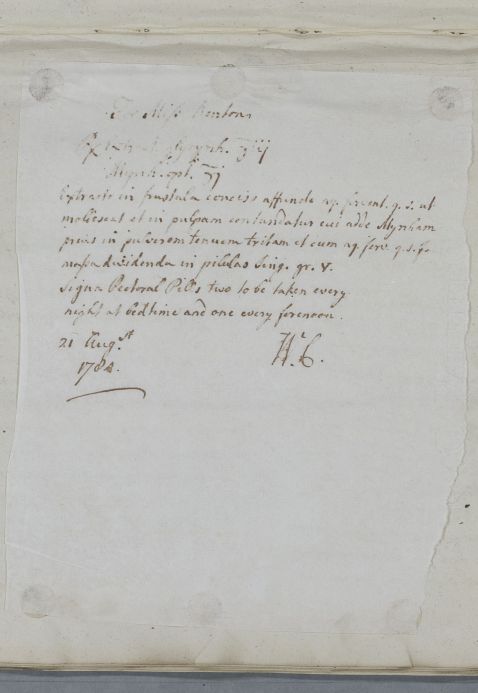 For Miss Kenton
Rx Extract. glycyrrh. ℥iij
Myrrh. opt. ℥j
Extracto in frustula conciso affunde aq. fervent. q. s. ut
molescat et in pulpam contundatur cui adde Myrrham
prius in pulverem tenuem tritam et cum aq. ferv. q.s. f.
massa dividenda in pilulas sing. gr. v.
Signa Pectoral Pills two to be taken every
night at bedtime and one every forenoon.
21 Augst
1784.
W. C.